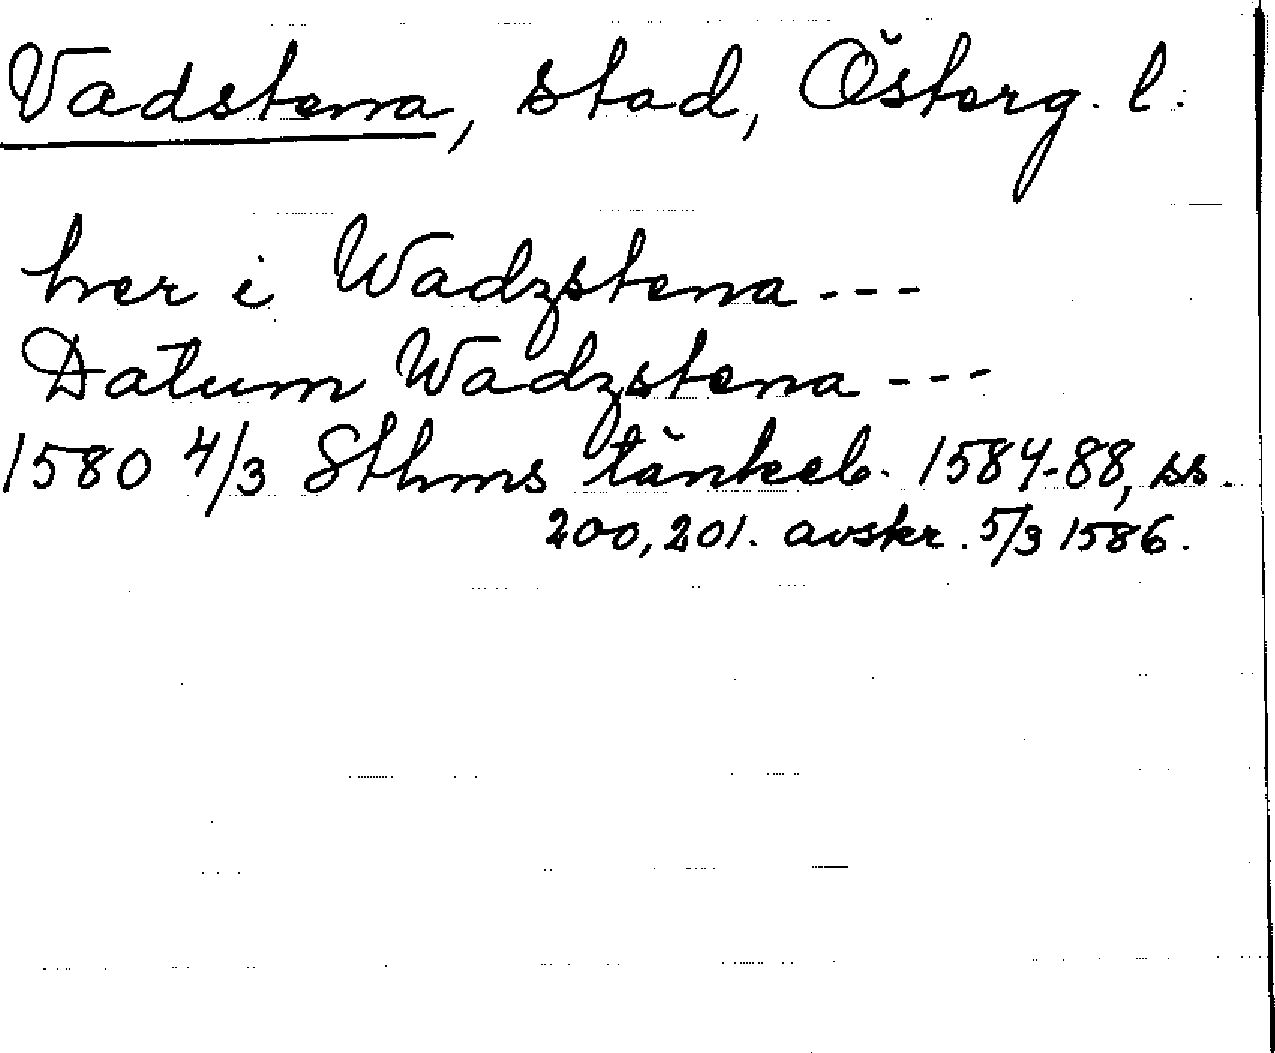 Vadstena, stad, Österg. l.
her i Wadzstena ---
Datum Wadzstena ---
1580 4/3 Sthms tänkeb. 1584-88, ss.
200, 201. avskr. 5/3 1586.